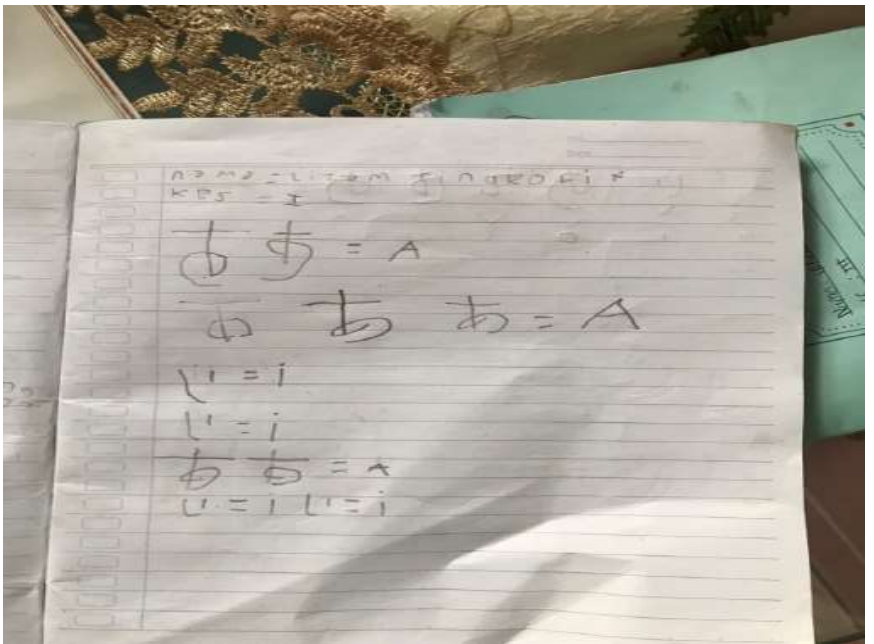 nama =
KLS = I
あ あ = A
あ あ あ = A
い = i
い = i
あ あ = A
い = i い = i